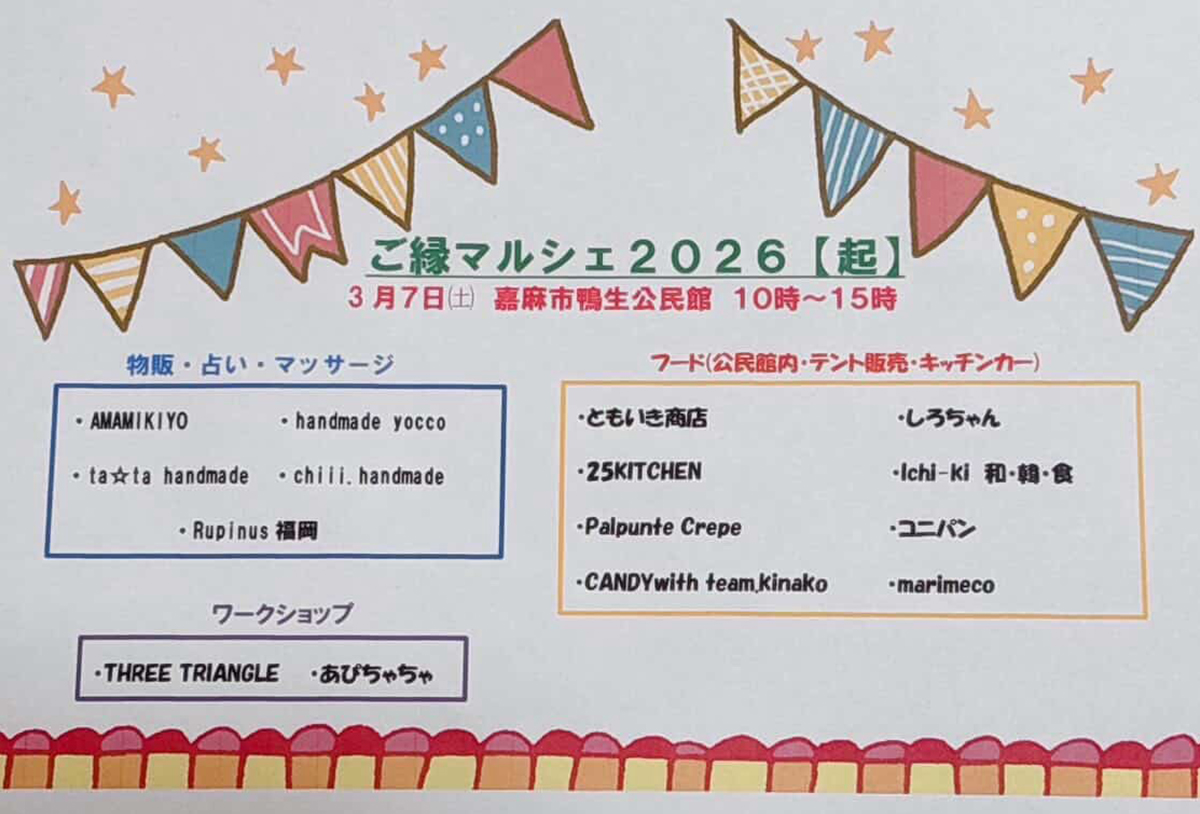 ご縁マルシェ2026【起】
3月7日㈯ 嘉麻市鴨生公民館 10時～15時
物販・占い・マッサージ
・AMAMIKIYO ・handmade yocco
・ta☆ta handmade ・chiii.handmade
・Rupinus福岡
ワークショップ
・THREE TRIANGLE ・あぴちゃちゃ
フード(公民館内・テント販売・キッチンカー)
・ともいき商店 ・しろちゃん
・25KITCHEN ・Ichi-ki 和・韓・食
・Palpunte Crepe ・コニパン
・CANDYwith team.kinako ・marimeco